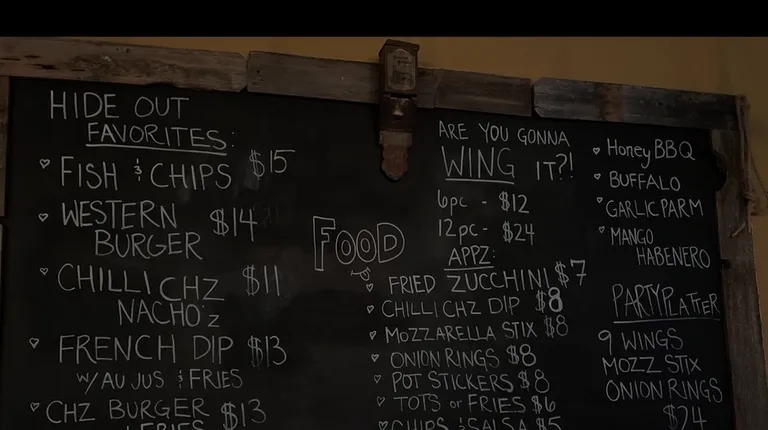 HIDE OUT
FAVORITES:
FISH & CHIPS $15
WESTERN $14
BURGER
CHILLI CHZ $11
NACHO'z
FRENCH DIP $13
W/ AU JUS & FRIES
CHZ BURGER $13
& FRIES
FOOD
ARE YOU GONNA
WING IT?!
6pc - $12
12pc - $24
APPZ:
FRIED ZUCCHINI $7
CHILLI CHZ DIP $8
MOZZARELLA STIX $8
ONION RINGS $8
POT STICKERS $8
TOTS or FRIES $6
CHIPS & SALSA $5
Honey BBQ
BUFFALO
GARLIC PARM
MANGO
HABENERO
PARTY PLATTER
9 WINGS
MOZZ STIX
ONION RINGS
$24